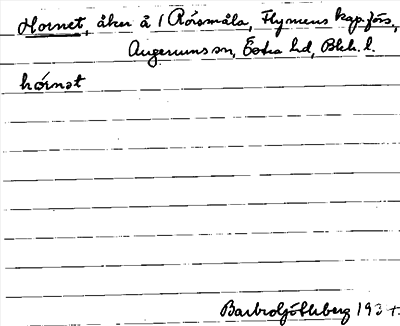 Hornet, åker å 1 Rörsmåla, Flymens kap.förs.,
Augerums sn, Östra hd, Blek. l.
hó̱rnət
Barbro Söderberg 193